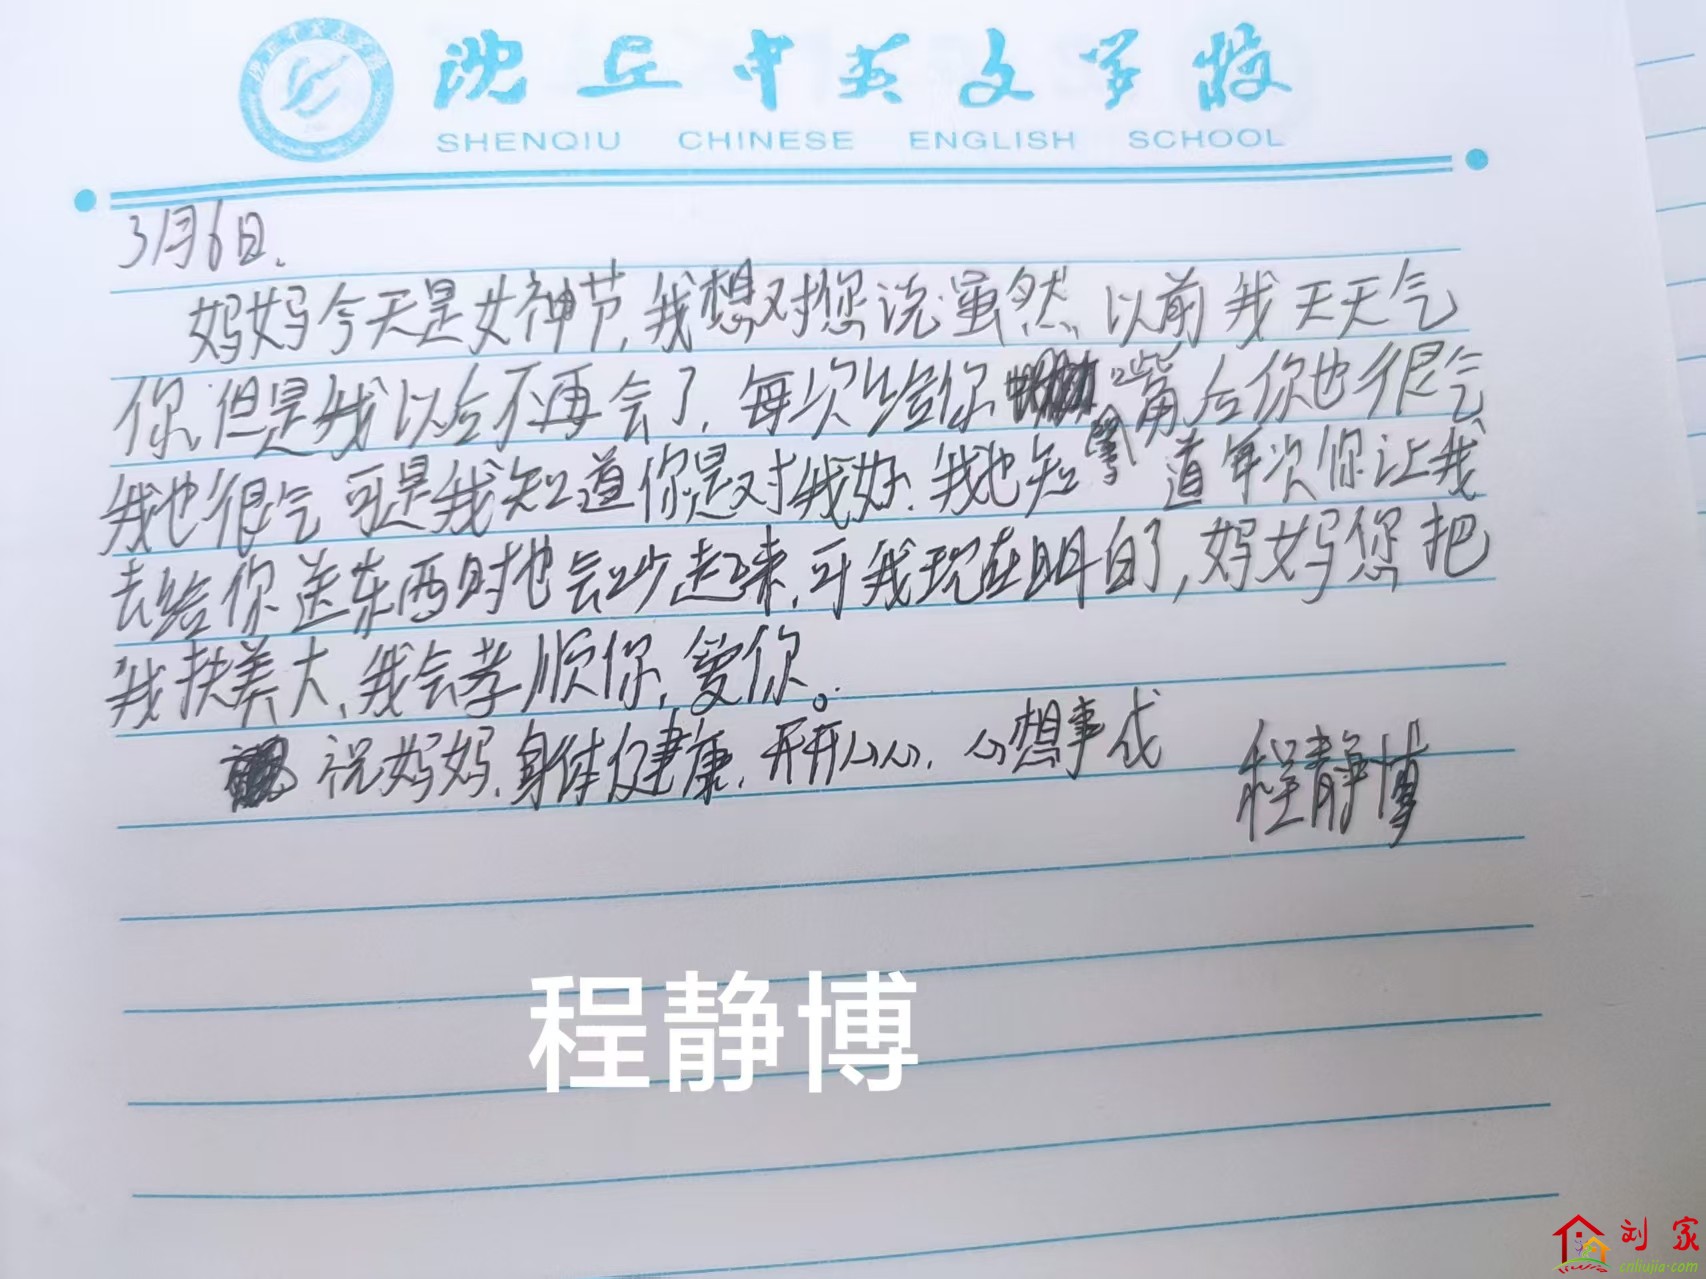 沈丘中英文学校
SHENQIU CHINESE ENGLISH SCHOOL
3月6日.
妈妈今天是女神节,我想对您说虽然以前我天天气
你,但是我以后不再会了,每次给你嘴后你也很气
我也很气可是我知道你是对我好.我也知道每次你让我
去给你送东西时也会吵起来,可我现在明白了,妈妈您把
我扶养大,我会孝顺你,爱你。
祝妈妈,身体健康,开开心心,心想事成
程静博
程静博
刘家
cnliujia.com